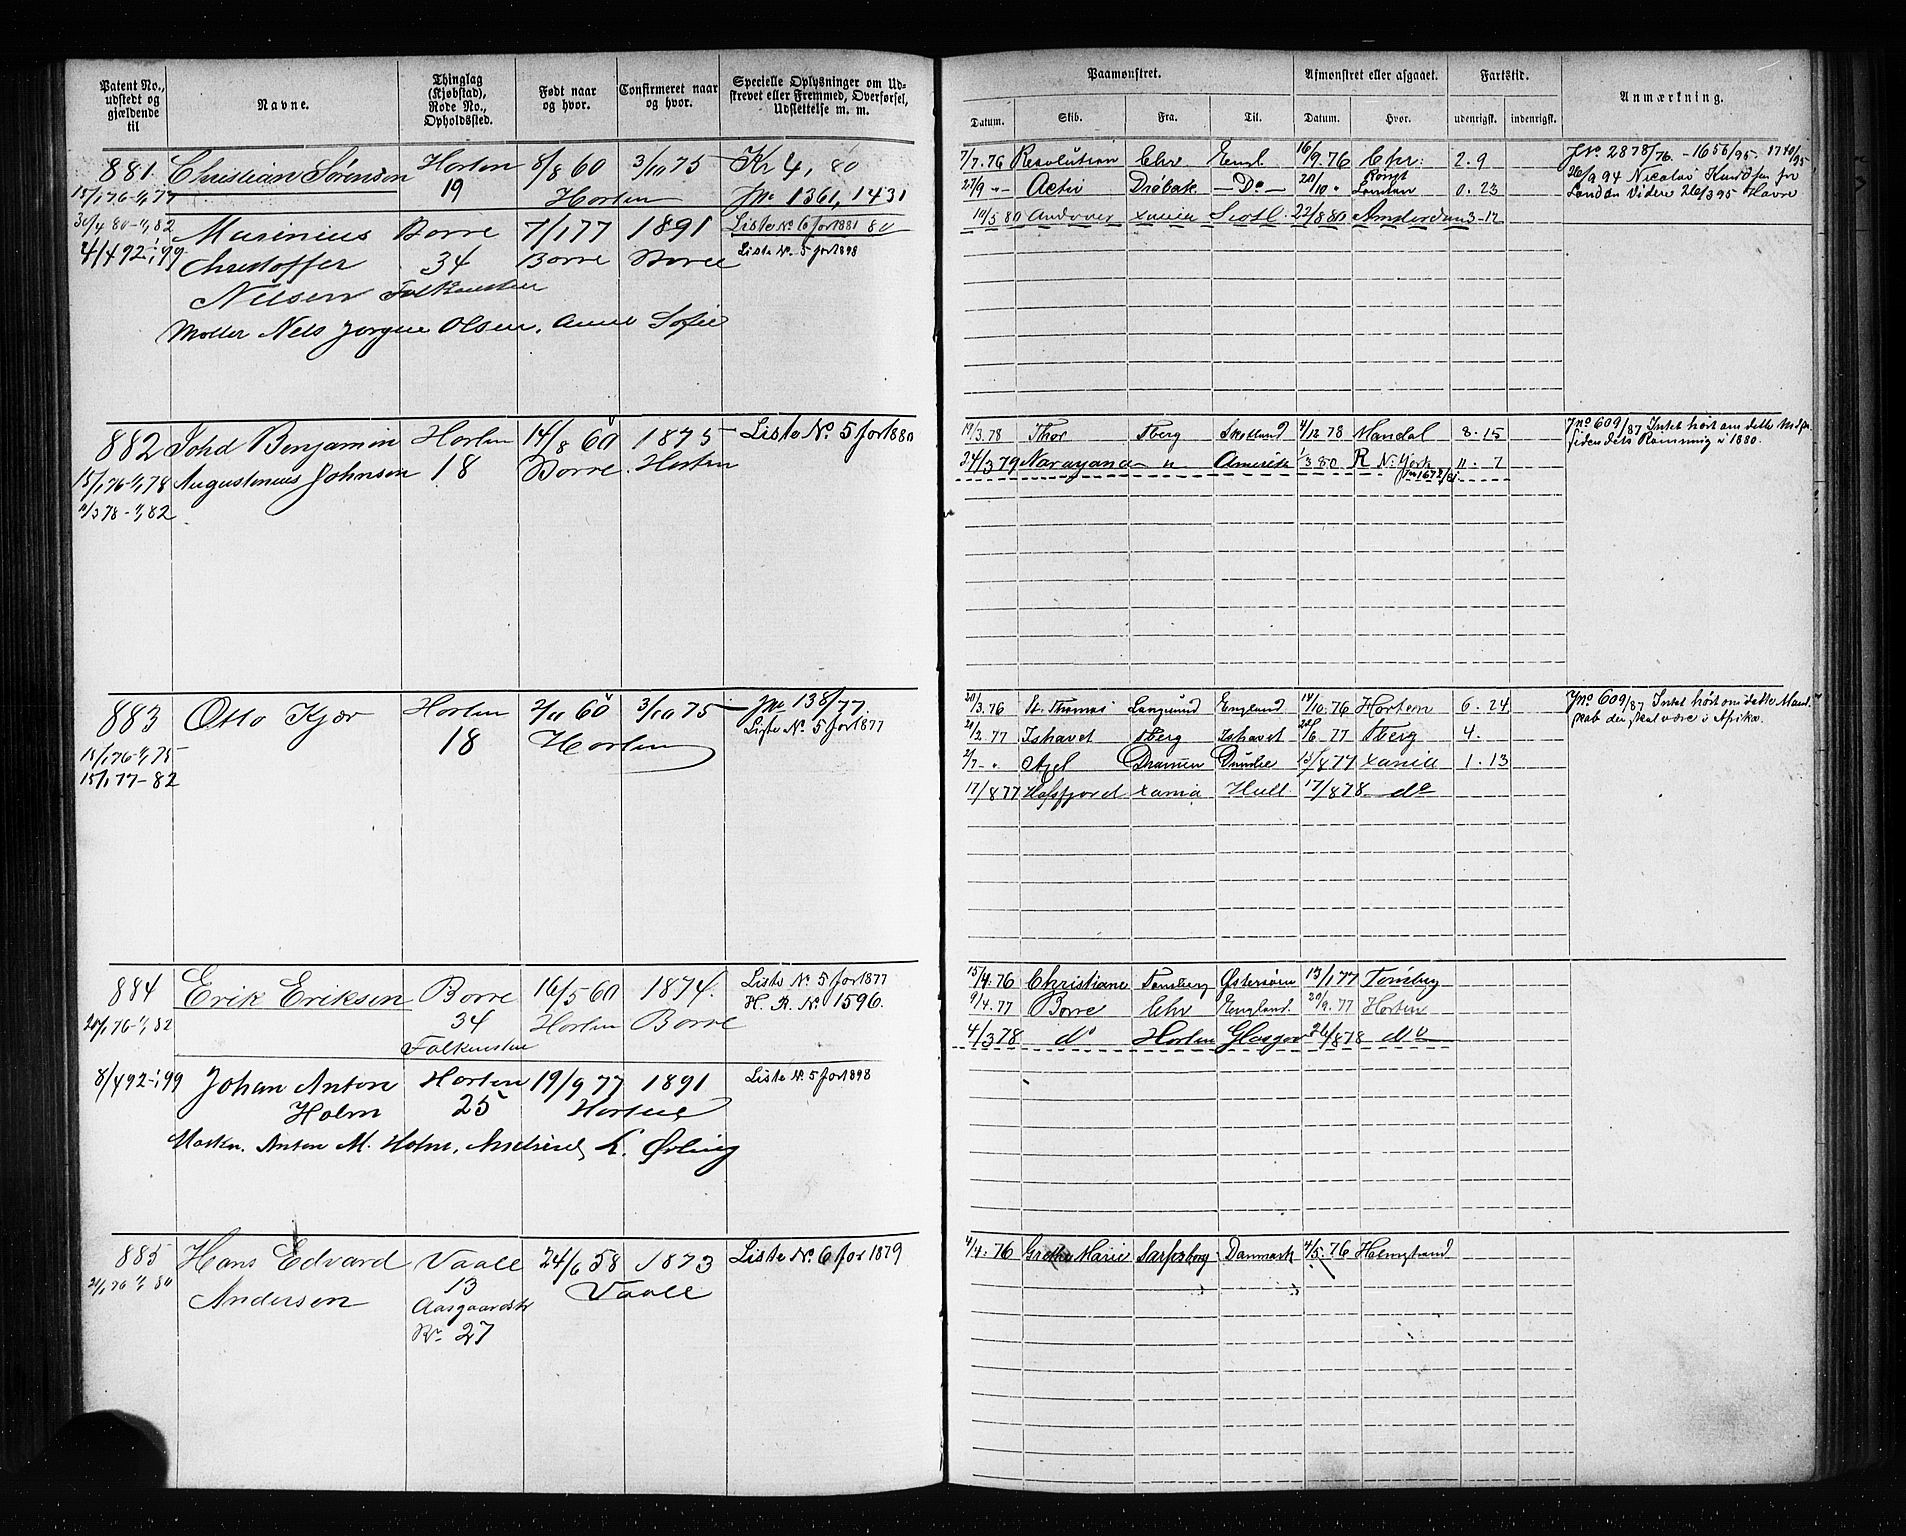 Patent No., udstedt og gjældende til
Navne.
Thinglag (Kjøbstad), Rode No., Opholdssted.
Født naar og hvor.
Confirmeret naar og hvor.
Specielle Oplysninger om Udstrevet eller Fremmed, Overførsel, Udslettelse m. m.
Paamønstret.
Afmønstret eller afgaaet.
Fartstid.
Anmærkning.
Datum.
Skib.
Fra.
Til.
Datum.
Hvor.
udenrigsk.
indenrigsk.
881. Christian Sørensen Horten 8/8 60 3/10 75 Kr 4, 80
19 Horten 1361, 1431
Marinius Borre 7/1 77 1891 Liste No 6 for 1881
4/4 92-1/1 99 Christoffer 34 Borre Borre Liste No 5 for 1898
Nilsen Falkensten
Møller Nils Jørgen Olsen, Anne Sofie
7/7.76 Resolution Chr Engl. 16/9.76 Chr: 2.9
27/9 Activ Drøbak Do 20/10 London 0.23
10/5 80 Andover Xania Scotl. 22/8 80 Amsterdam 3-12
Jno 2878/76 - 1656/95. 1740/95
26/9 94 Nicolai Knudsen fra
London Videre 26/3 95 Havre
882 Johd Benjamin Horten 14/8 60 1875 Liste No. 5 for 1880
Augustinius Johnsen 18 Borre Horten
19/3.78 Thor Tberg Skotland 4/12 78 Mandal 8.15
24/3 79 Narayana " Amerika 1/3 80 R N. York 11.7
Jno 1672/81
Jno 609/87 Intet hørt om dette Md.
siden dets Rømning i 1880.
883 Otto Kjær Horten 2/11 60 3/10 75 Jno 138/77.
18 Horten Liste No. 5 for 1877
15/1 77-82
20/3.76 St. Thomas Langsund England 14/10.76 Horten 6.24
21/2.77 Ishavet Tberg Ishavet 22/6 77 Tberg 4.
2/7 Axel Drammen 15/8 77 Xania 1.13
17/8 77 Hafsfjord Xania Hull 17/8 78 do
Jno 609/87 Intet hørt om dette Mand-
skab der skal være i Afrika.
884 Erik Eriksen Borre 16/5 60 1874. Liste No 5 for 1877
34 Horten Borre H. R. No 1596.
Falkensten
15/4.76 Christiane Tønsberg Østersøen 13/1 77 Tønsberg
9/4.77 Borre Chr England. 20/9.77 Horten
4/3 78 do Horten Glasgow 26/8 78 do
8/4 92-1/1 99 Johan Anton Horten 19/9 77 1891 Liste No. 5 for 1898
Holm 25 Horten
Anton M. Holm,
885 Hans Edvard Vaale 24/6 58 1873 Liste No. 6 for 1879
Andersen 13 Vaale
Aasgaardstr
No 27
4/4.76 Grethe Marie Sarpsborg Danmark 4/5.76 Holmestrand